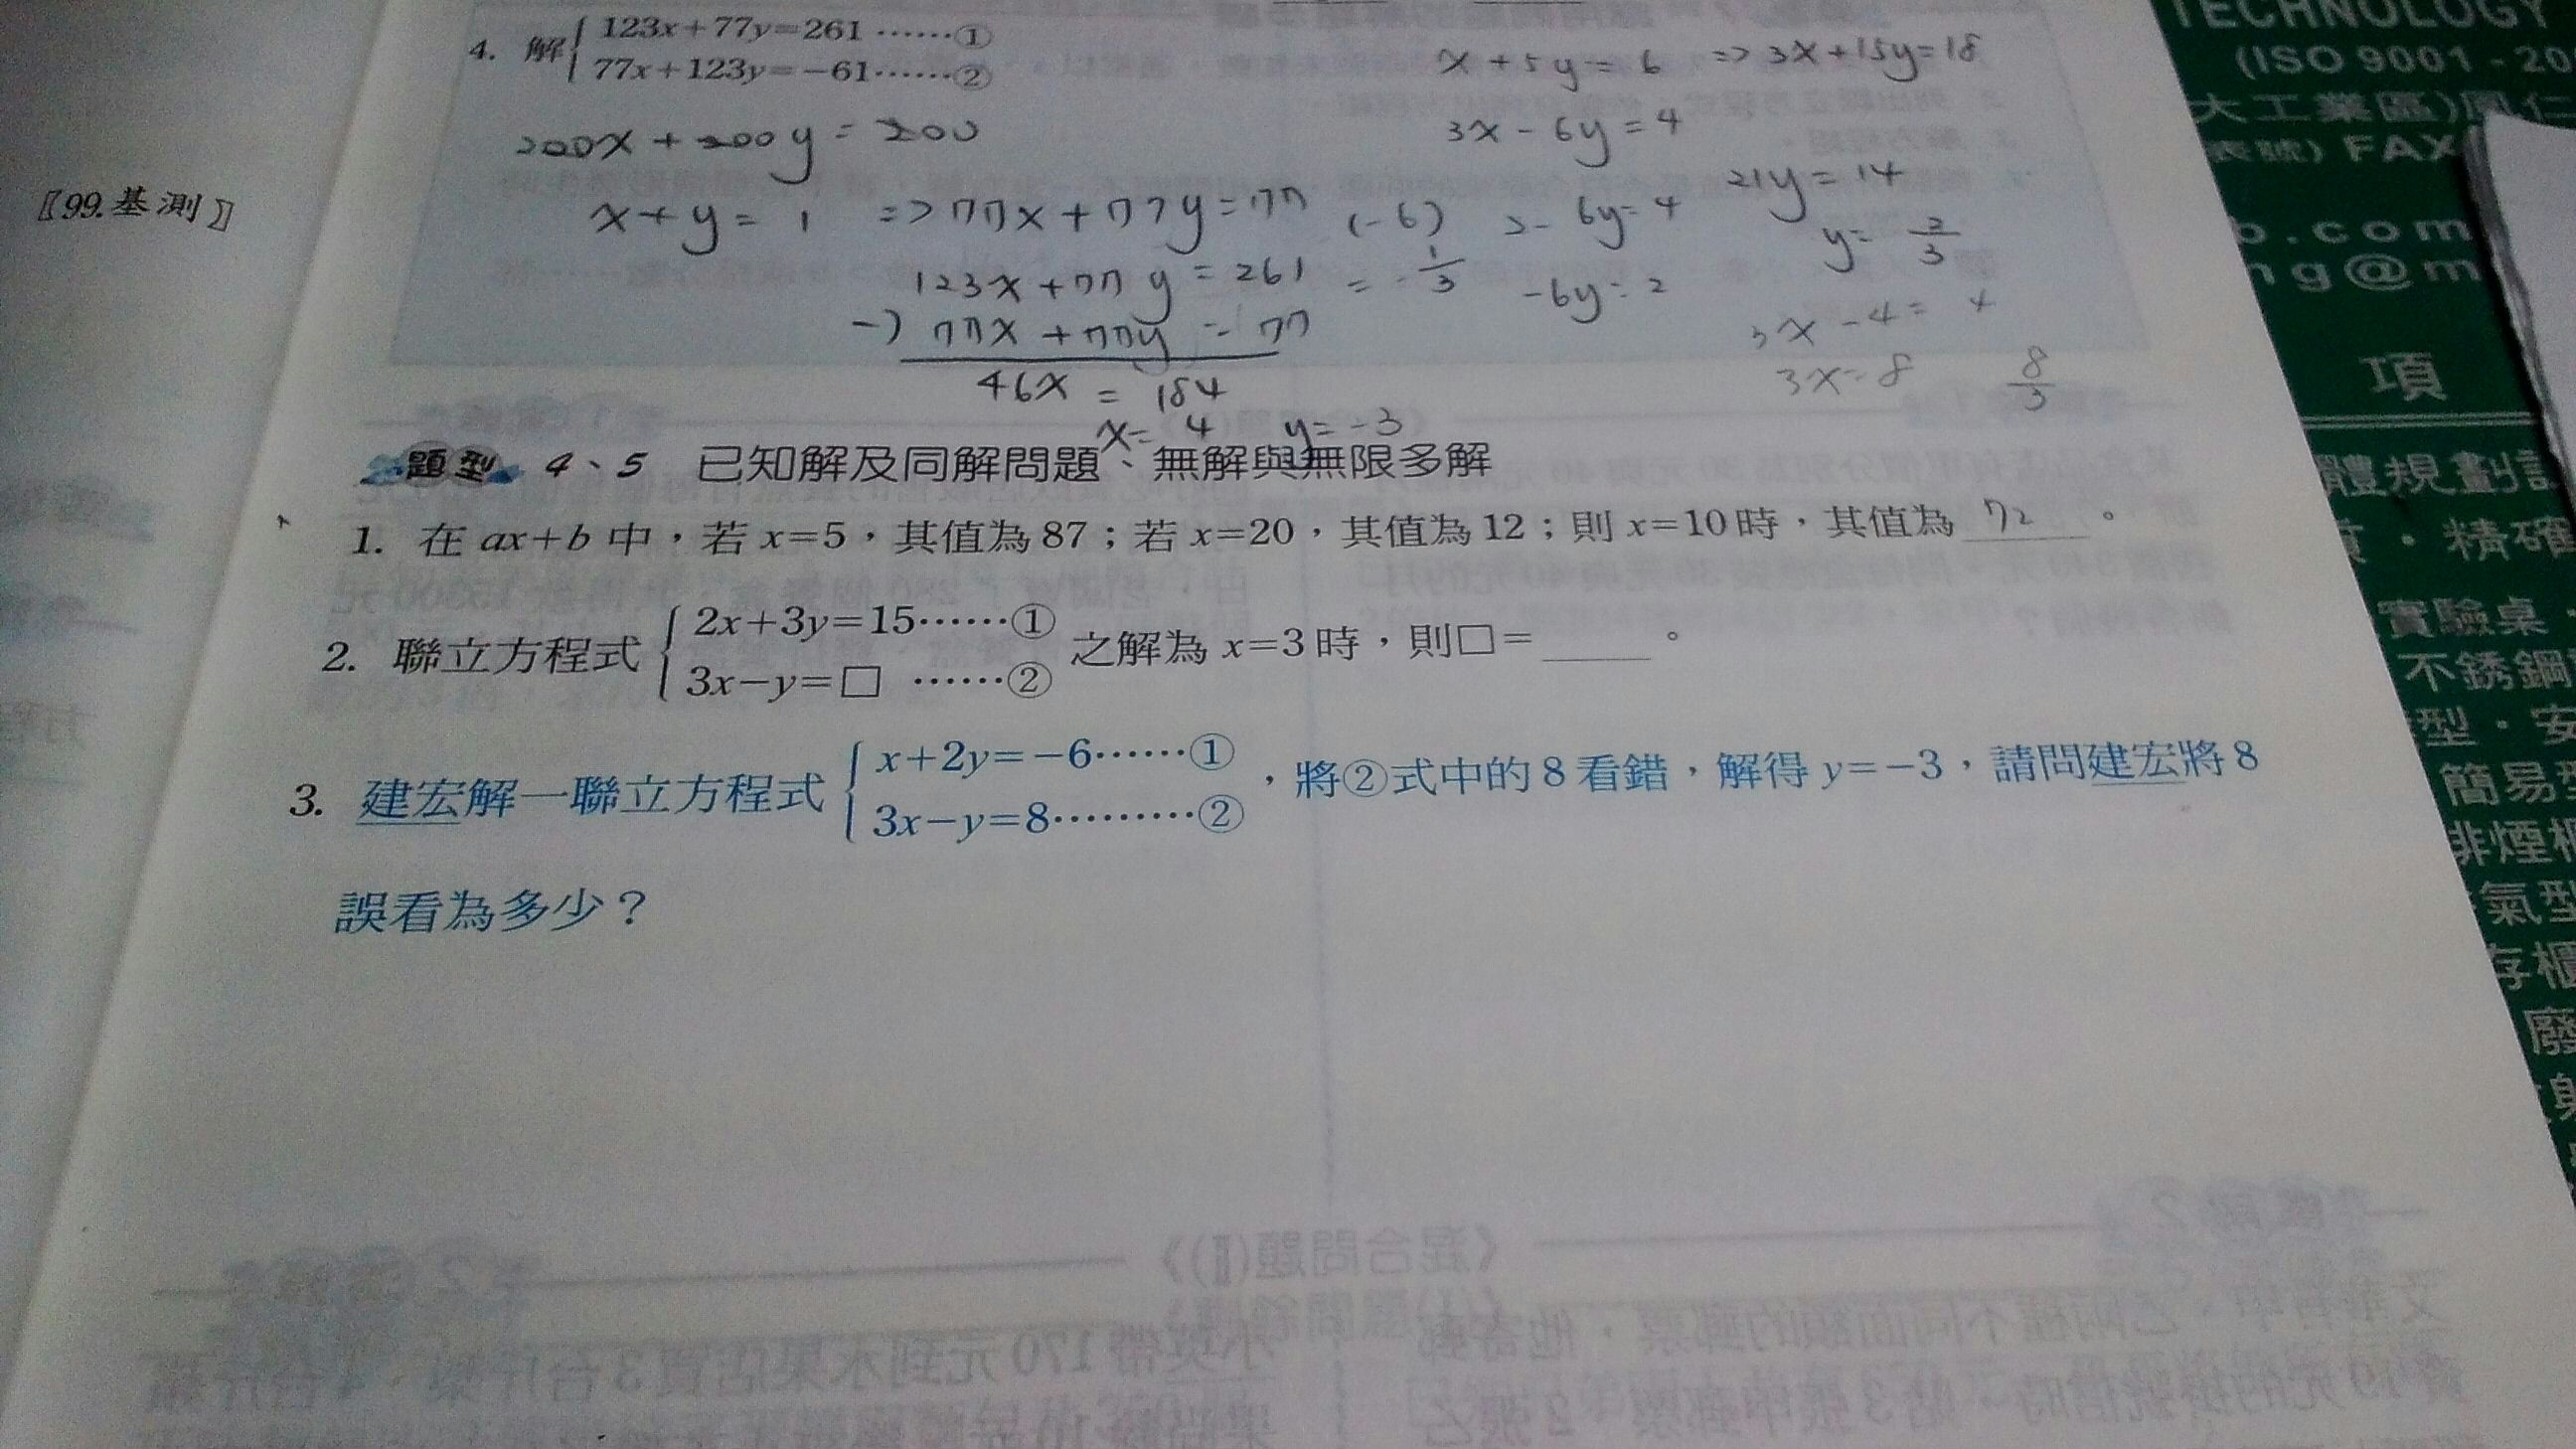 4. 解{123x+77y=261 ……①
77x+123y=-61……②
200x+200y=200
x+y=1 => 77x+77y=77
123x+77y=261
-) 77x+77y=77
46x=184
x=4 y=-3
x+5y=6 => 3x+15y=18
3x-6y=4
21y=14
y=2/3
(-6)
=-1/3
2-6y=4
-6y=2
3x-4=4
3x=8
8/3
〖99.基測〗
題型 4、5 已知解及同解問題、無解與無限多解
1. 在 ax+b 中,若 x=5,其值為 87;若 x=20,其值為 12;則 x=10 時,其值為 72 。
2. 聯立方程式{2x+3y=15……①
3x-y=□ ……② 之解為 x=3 時,則□=_____。
3. 建宏解一聯立方程式{x+2y=-6……①
3x-y=8………② ,將②式中的 8 看錯,解得 y=-3,請問建宏將 8
誤看為多少?
TECHNOLOGY
(ISO 9001 - 20
大工業區)鳳仁
表號) FAX
b.com
ng@m
項
體規劃設
精確
實驗桌
不銹鋼
型·安
簡易型
排煙櫃
氣型
存櫃
廢